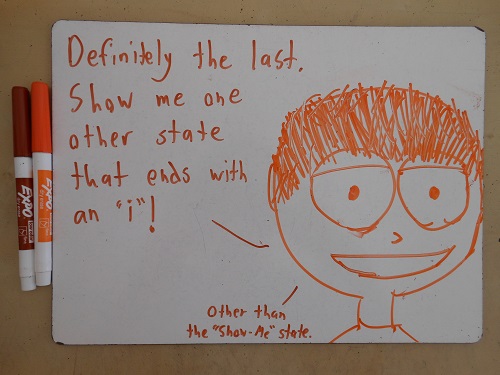 Definitely the last.
Show me one
other state
that ends with
an "i"!
Other than
the "Show-Me" state.
EXPO
EXPO